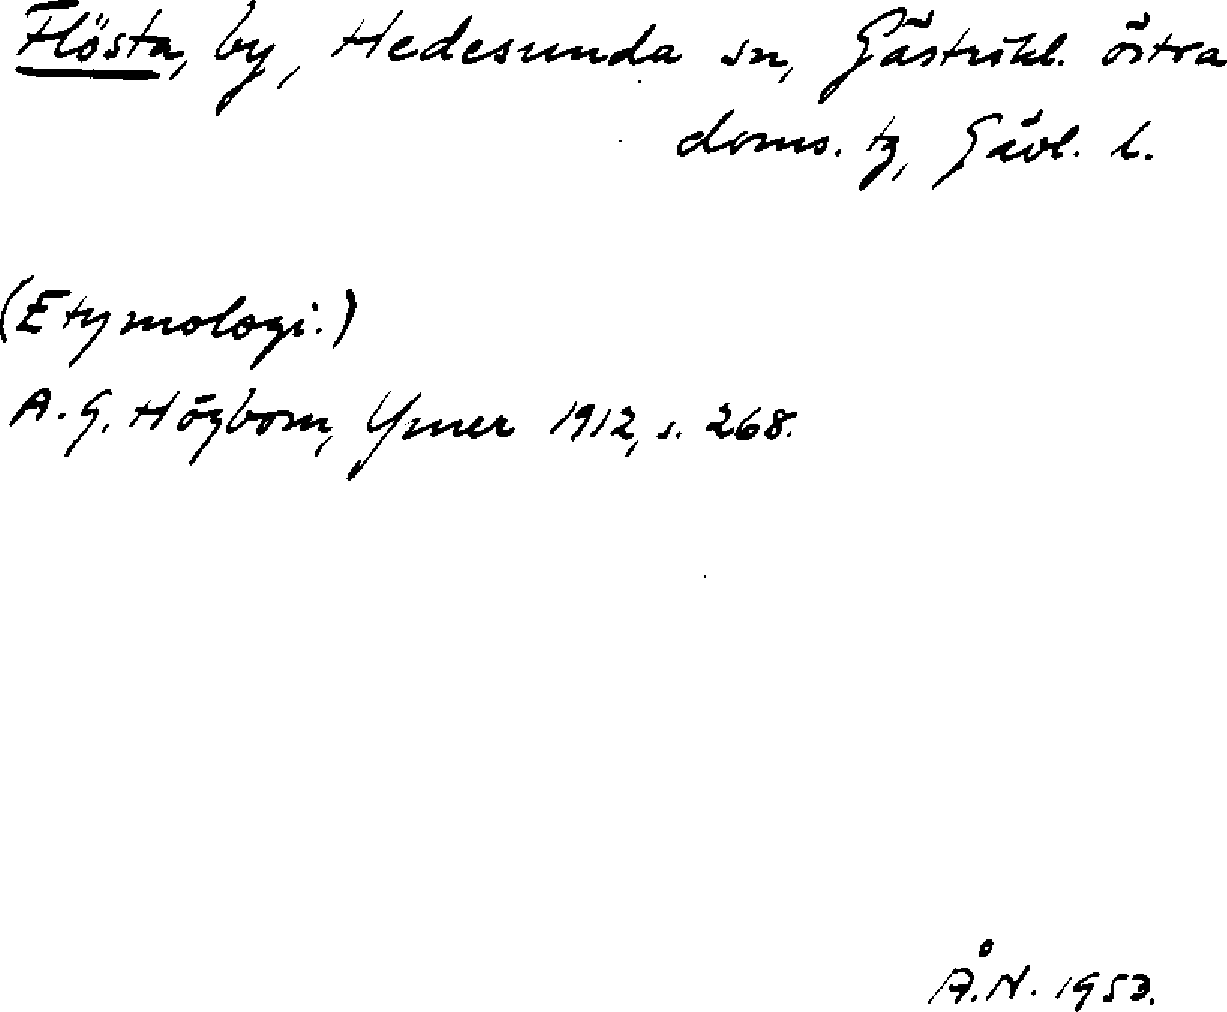 Flösta, by, Hedesunda sn, Gästrikl. östra
doms. tg, Gävl. l.
(Etymologi.)
A. G. Högbom, Ymer 1912, s. 268.
Å.N. 1953.